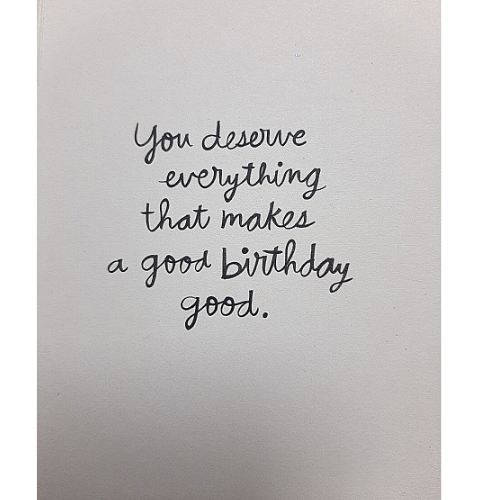 You deserve
everything
that makes
a good birthday
good.